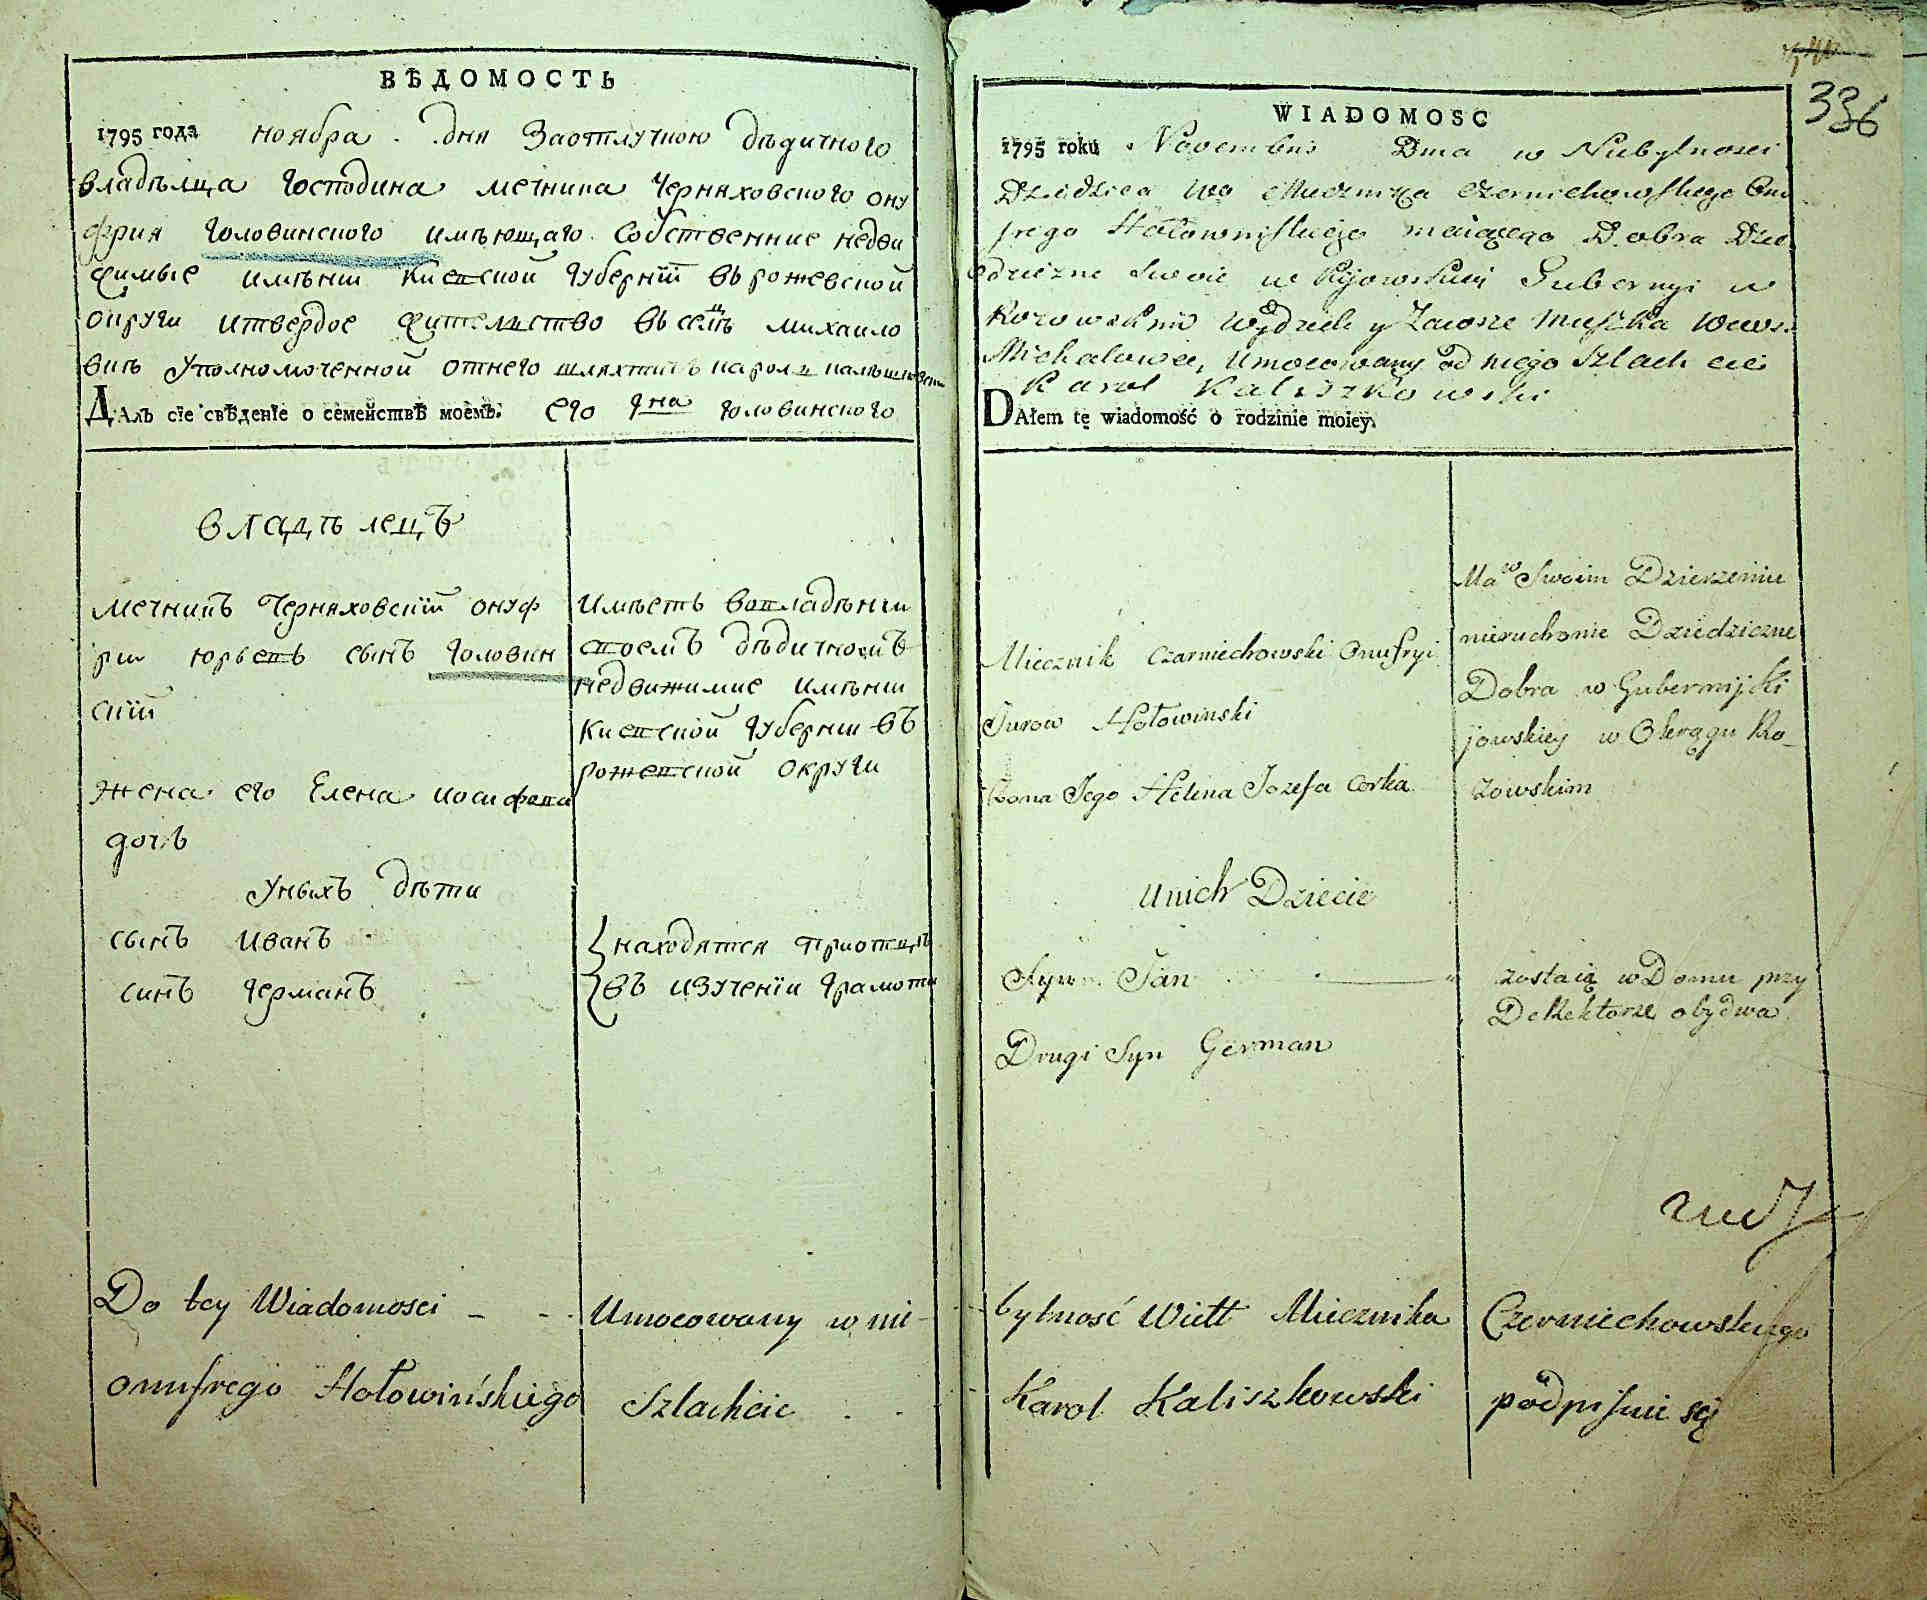 ВѢДОМОСТЬ
1795 года ноября дня Заотлучкою дѣдичного
владѣлца Господина мечника Черняховского ону
фрия Головинского имѣющаго Собственние недви
жимые имѣнии Киевской Губернїи въ рожевской
округи итвердое жителство въ селѣ михаило
вкѣ Уполномоченной отнего шляхтичъ кароль
ДАлъ сїе свѣденїе о семействѣ моемъ. его Гна Головинского
владѣлецъ
мечникъ Черняховскїй онуф
рии юрьевъ сынъ Головин
скїй
жена его Елена иосифова
дочь
Унихъ дѣти
сынъ иванъ
синъ Германъ
имѣетъ вовладѣнии
своемъ дѣдичномъ
недвижимие имѣнии
Киевской Губернии въ
рожевской округи
находятся приотцѣ
въ изученїи Грамоти
Do tey Wiadomosci - - Umocowany w nie-
onufrego Hołowińskiego Szlachcic
336
WIADOMOSC
1795 roku Novembris Dnia w Niebytnosci
Dziedzica Wo Miecznika Czerniechowskiego Onu
frego Hołowinskiego maiącego Dobra Dzie
dziczne swoie w Kijowskiey Gubernyi w
Rozowskim
Michałowce, Umocowany od niego Szlachcic
Karol Kaliszkowski
DAłem tę wiadomość o rodzinie moiey.
Miecznik Czarniechowski Onufryi
Jurow Hołowinski
Żona Jego Helena Jozefa Corka
Unich Dziecie
Syn Jan
Drugi Syn German
Ma w Swoim Dzierzeniu
nieruchomie Dziedziczne
Dobra w Guberniji Ki
jowskiey w Okręgu Ro-
zowskim
zostaią w Domu przy
Derektorze obydwa
bytność Wiell Miecznika Czerniechowskiego
Karol Kaliszkowski podpisuie się